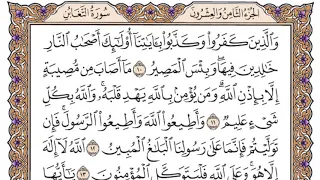 الجزء الثامن والعشرون سورة التغابن
وَٱلَّذِينَ كَفَرُوا۟ وَكَذَّبُوا۟ بِـَٔايَـٰتِنَآ أُو۟لَـٰٓئِكَ أَصْحَـٰبُ ٱلنَّارِ
خَـٰلِدِينَ فِيهَا ۖ وَبِئْسَ ٱلْمَصِيرُ ١٠ مَآ أَصَابَ مِن مُّصِيبَةٍ
إِلَّا بِإِذْنِ ٱللَّهِ ۗ وَمَن يُؤْمِنۢ بِٱللَّهِ يَهْدِ قَلْبَهُۥ ۚ وَٱللَّهُ بِكُلِّ
شَىْءٍ عَلِيمٌ ١١ وَأَطِيعُوا۟ ٱللَّهَ وَأَطِيعُوا۟ ٱلرَّسُولَ ۚ فَإِن
تَوَلَّيْتُمْ فَإِنَّمَا عَلَىٰ رَسُولِنَا ٱلْبَلَـٰغُ ٱلْمُبِينُ ١٢ ٱللَّهُ لَآ إِلَـٰهَ
إِلَّا هُوَ ۚ وَعَلَى ٱللَّهِ فَلْيَتَوَكَّلِ ٱلْمُؤْمِنُونَ ١٣ يَـٰٓأَيُّهَا